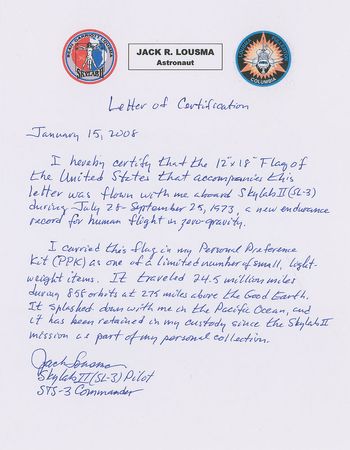 BEAN GARRIOTT LOUSMA
SKYLAB II
JACK R. LOUSMA
Astronaut
COLUMBIA
Letter of Certification
January 15, 2008
I hereby certify that the 12"x 18" Flag of
the United States that accompanies this
letter was flown with me aboard Skylab II (SL-3)
during July 28 - September 25, 1973, a new endurance
record for human flight in zero-gravity.
I carried this flag in my Personal Preference
Kit (PPK) as one of a limited number of small, light-
weight items. It traveled 24.5 million miles
during 858 orbits at 275 miles above the Good Earth.
It splashed down with me in the Pacific Ocean, and
it has been retained in my custody since the Skylab II
mission as part of my personal collection.
Jack Lousma
Skylab II (SL-3) Pilot
STS-3 Commander